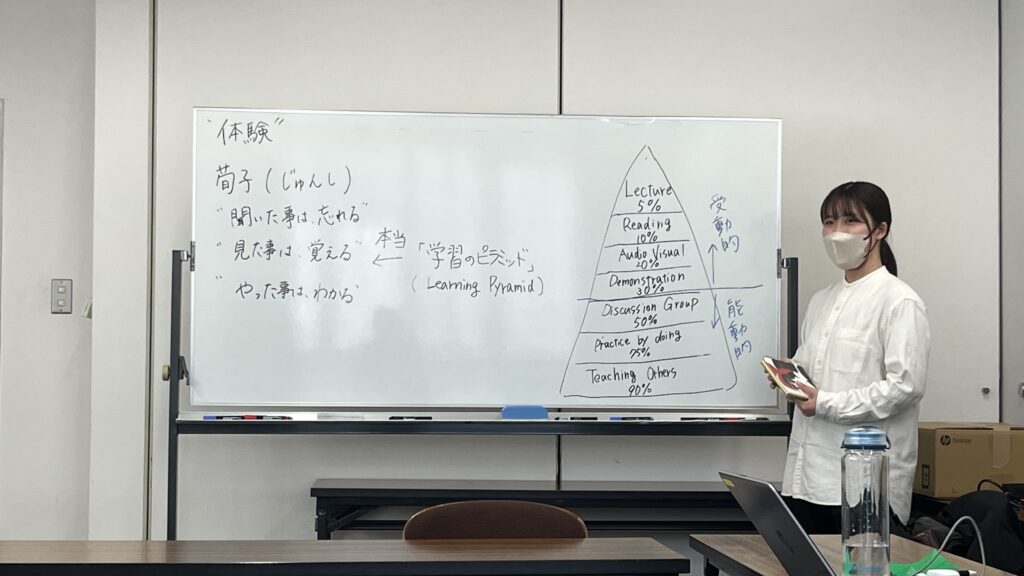 "体験"
荀子(じゅんし)
"聞いた事は、忘れる"
"見た事は、覚える"
"やった事は、わかる"
本当
←
「学習のピラミッド」
(Learning Pyramid)
Lecture
5%
Reading
10%
Audio Visual
20%
Demonstration
30%
Discussion Group
50%
Practice by doing
75%
Teaching Others
90%
受動的
能動的
hp